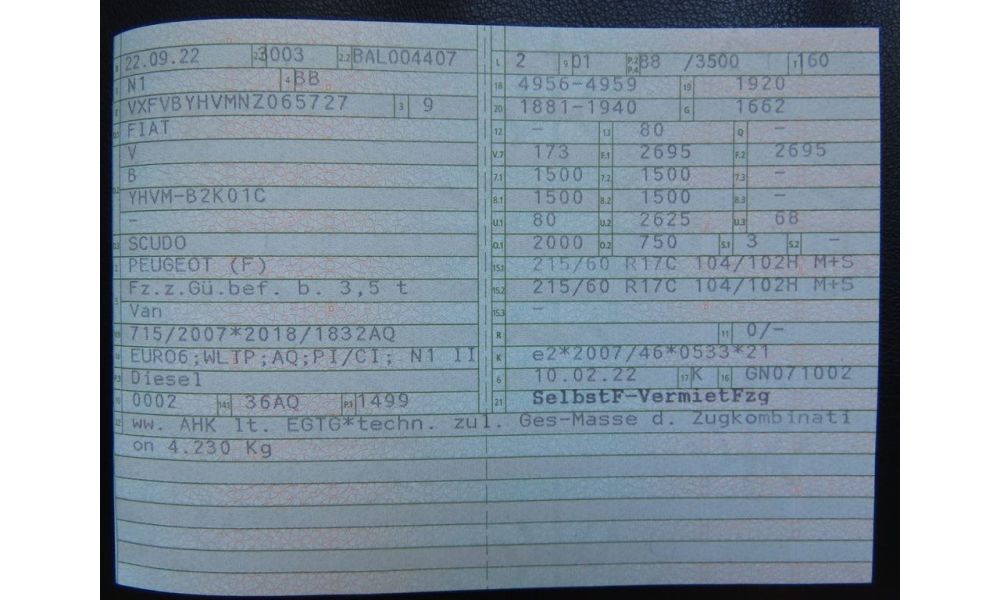 B 22.09.22 2.1 3003 2.2 BAL004407
J N1 4 BB
E VXFVBYHVMNZ065727 3 9
D.1 FIAT
V
D.2 B
YHVM-B2K01C
-
D.3 SCUDO
2 PEUGEOT (F)
5 Fz.z.Gü.bef. b. 3,5 t
Van
V.9 715/2007*2018/1832AQ
14 EURO6;WLTP;AQ;PI/CI; N1 II
P.3 Diesel
10 0002 14.1 36AQ P.1 1499
L 2 9 01 P.2 P.4 88 /3500 T 160
18 4956-4959 19 1920
20 1881-1940 G 1662
12 - 13 80 Q -
V.7 173 F.1 2695 F.2 2695
7.1 1500 7.2 1500 7.3 -
8.1 1500 8.2 1500 8.3 -
U.1 80 U.2 2625 U.3 68
O.1 2000 O.2 750 S.1 3 S.2 -
15.1 215/60 R17C 104/102H M+S
15.2 215/60 R17C 104/102H M+S
15.3 -
R 11 0/-
K e2*2007/46*0533*21
6 10.02.22 17 K 16 GN071002
21 SelbstF-VermietFzg
22 ww. AHK lt. EGTG*techn. zul. Ges-Masse d. Zugkombinati
on 4.230 Kg